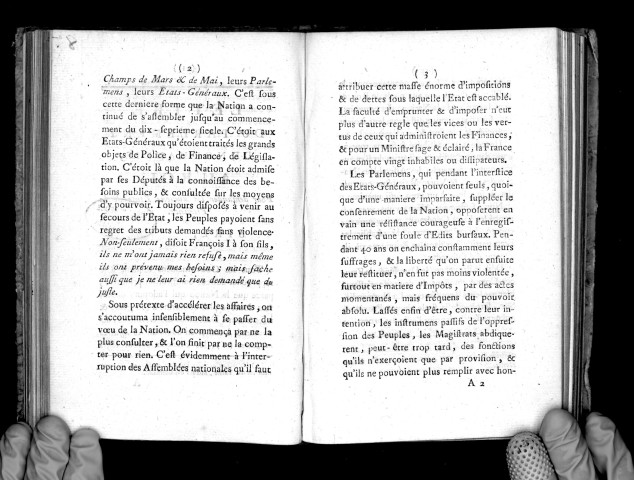 ( 2 )
Champs de Mars & de Mai, leurs Parle-
mens, leurs Etats-Généraux. C'est sous
cette derniere forme que la Nation a con-
tinué de s'assembler jusqu'au commence-
ment du dix-septieme siecle. C'étoit aux
Etats-Généraux qu'étoient traités les grands
objets de Police, de Finance, de Législa-
tion. C'étoit là que la Nation étoit admise
par ses Députés à la connoissance des be-
soins publics, & consultée sur les moyens
d'y pourvoir. Toujours disposés à venir au
secours de l'Etat, les Peuples payoient sans
regret des tributs demandés sans violence.
Non-seulement, disoit François I à son fils,
ils ne m'ont jamais rien refusé, mais même
ils ont prévenu mes besoins; mais sache
aussi que je ne leur ai rien demandé que de
juste.
Sous prétexte d'accélérer les affaires, on
s'accoutuma insensiblement à se passer du
vœu de la Nation. On commença par ne la
plus consulter, & l'on finit par ne la comp-
ter pour rien. C'est évidemment à l'inter-
ruption des Assemblées nationales qu'il faut
( 3 )
attribuer cette masse énorme d'impositions
& de dettes sous laquelle l'Etat est accablé.
La faculté d'emprunter & d'imposer n'eut
plus d'autre regle que les vices ou les ver-
tus de ceux qui administroient les Finances,
& pour un Ministre sage & éclairé, la France
en compte vingt inhabiles ou dissipateurs.
Les Parlemens, qui pendant l'interstice
des Etats-Généraux, pouvoient seuls, quoi-
que d'une maniere imparfaite, suppléer le
consentement de la Nation, opposerent en
vain une résistance courageuse à l'enregis-
trement d'une foule d'Edits bursaux. Pen-
dant 40 ans on enchaîna constamment leurs
suffrages, & la liberté qu'on parut ensuite
leur restituer, n'en fut pas moins violentée,
surtout en matiere d'Impôts, par des actes
momentanés, mais fréquens du pouvoir
absolu. Lassés enfin d'être, contre leur in-
tention, les instrumens passifs de l'oppres-
sion des Peuples, les Magistrats abdique-
rent, peut-être trop tard, des fonctions
qu'ils n'exerçoient que par provision, &
qu'ils ne pouvoient plus remplir avec hon-
A 2